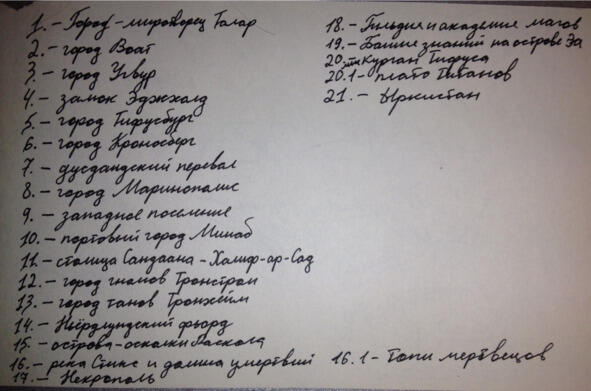 1. - Город-миротворец Талар
2. - город Воат
3. - город Угвур
4. - замок Эджхалд
5. - город Тифусбург
6. - город Кроносберг
7. - дусдандский перевал
8. - город Маринополис
9. - западное поселение
10. - портовый город Минаб
11. - столица Сандаана - Халиф-ар-Сад
12. - город гномов Тронстром
13. - город танов Тронхейм
14. - Ньёрдлундский фьорд
15. - острова-осколки Раскола
16. - река Стикс и долина умертвий 16.1 - Топи мертвецов
17. - Некрополь
18. - Гильдия и академия магов
19. - Башня знаний на острове Эа
20. Курган Тифуса
20.1 - плато Титанов
21. - Ыркистан